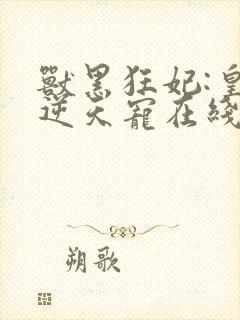 獸黑狂妃:皇
逆天寵在綫
朔歌